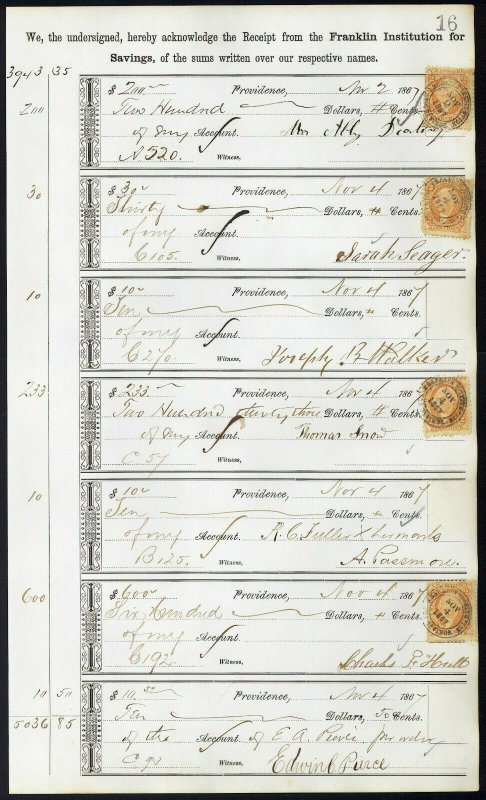 16
We, the undersigned, hereby acknowledge the Receipt from the Franklin Institution for
Savings, of the sums written over our respective names.
3943 35
200
$ 200 Providence, Nov 2 1867
Two Hundred Dollars, # Cents.
of my Account. Mrs Abby
A 520. Witness,
30
$ 30 Providence, Nov 4 1867
Thirty Dollars, # Cents.
of my Account.
C 105. Witness, Sarah Seager.
10
$ 10 Providence, Nov 4 1867
Ten Dollars, " Cents.
of my Account.
C 270 Witness, Joseph B. Walker
233
$ 233 Providence, Nov 4 1867
Two Hundred thirty three Dollars, # Cents.
of my Account. Thomas Snow
C 57 Witness,
10
$ 10 Providence, Nov 4 1867
Ten Dollars, # Cents.
of my Account. R. C. Fuller X her mark
B 125. Witness, A. Passmore.
600
$ 600 Providence, Nov 4 1867
Six Hundred Dollars, # Cents.
of my Account.
C 192. Witness, Charles F.
10 50
$ 10.50 Providence, Nov 4 1867
Ten Dollars, 50 Cents.
of the Account. of E. A. Pierce per order
5036 85
C 93 Witness, Edwin C Pierce